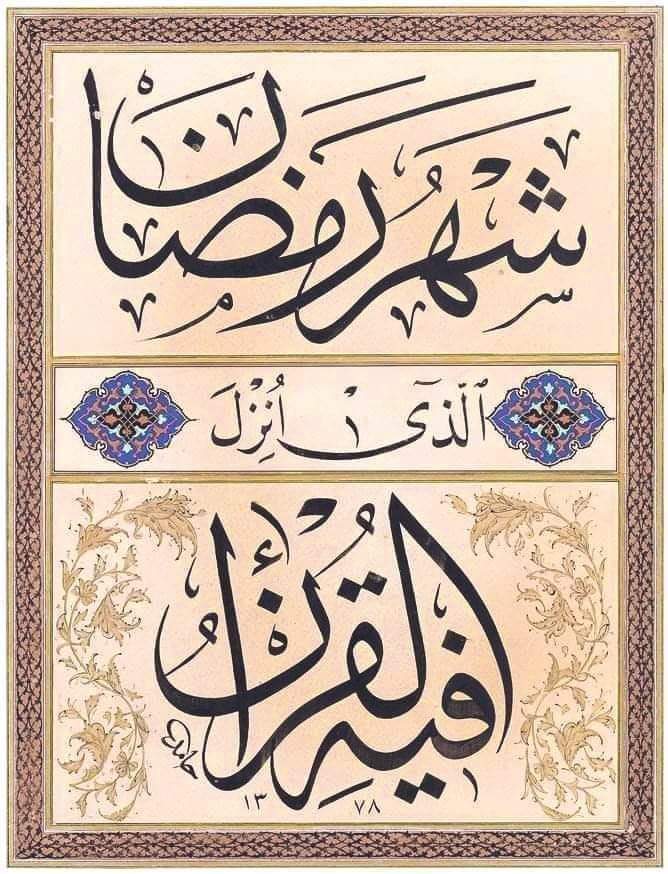 شهر رمضان
الذي انزل
فيه القرأن
حامد
١٣٧٨